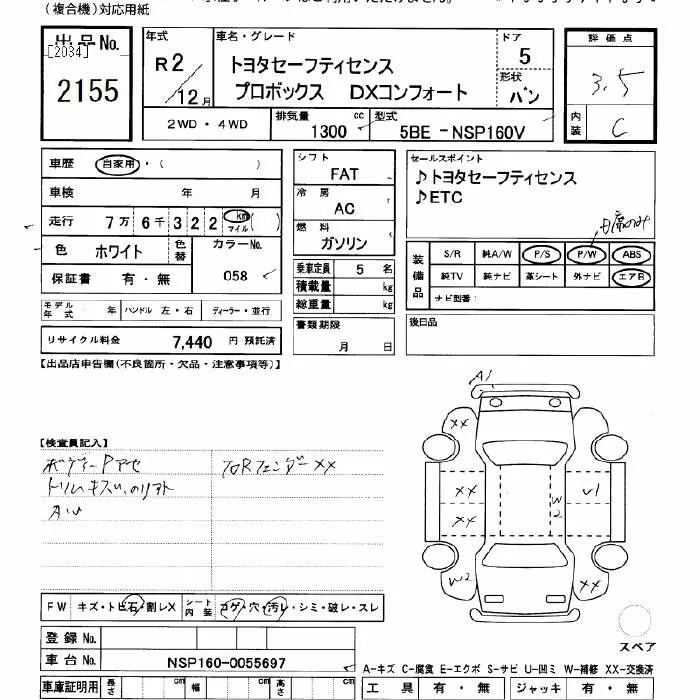 (複合機)対応用紙
出品No.
[2034]
2155
年式 R2 / 12月
車名・グレード
トヨタセーフティセンス
プロボックス DXコンフォート
ドア 5
形状 バン
評価点
3.5
内装 C
2WD・4WD
排気量 1300 cc
型式 5BE-NSP160V
車歴 自家用・( )
車検 年 月
走行 7万 6千 3 2 2 km マイル ( )
色 ホワイト 色替
カラーNo. 058
保証書 有・無
モデル年式 年 ハンドル 左・右 ディーラー・並行
リサイクル料金 7,440 円 預託済
シフト FAT
冷房 AC
燃料 ガソリン
乗車定員 5 名
積載量 kg
総重量 kg
書類期限
月 日
セールスポイント
♪トヨタセーフティセンス
♪ETC
装備品
S/R 純A/W P/S P/W ABS
純TV 純ナビ 革シート 外ナビ エアB
ナビ型番:
後日品
【出品店申告欄(不良箇所・欠品・注意事項等)】
【検査員記入】
A1
XX
XX
XX
W2
U1
W2
XX
FW キズ・トビ石・割レX
シート内装 コゲ・穴・汚レ・シミ・破レ・スレ
スペア
登録No.
車台No. NSP160-0055697
A-キズ C-腐食 E-エクボ S-サビ U-凹ミ W-補修 XX-交換済
車庫証明用 長さ cm 幅 cm 高さ cm
工具 有・無 ジャッキ 有・無